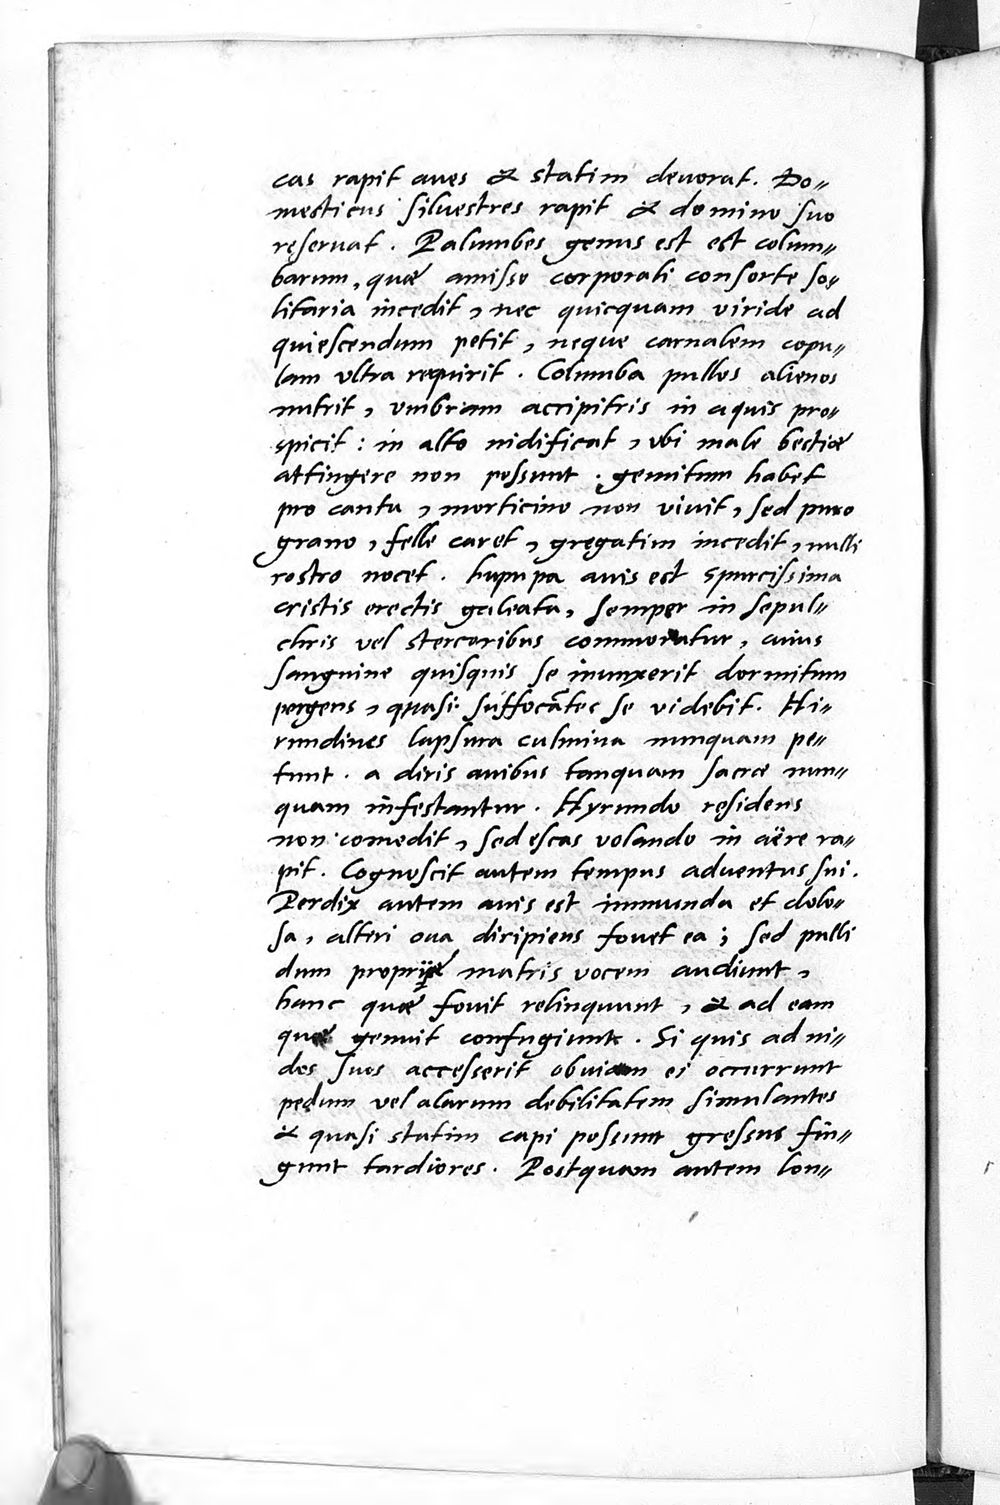 cas rapit aues & statim deuorat. Do〃
mesticus siluestres rapit & domino suo
reseruat. Palumbes genus est est colum〃
barum, quæ amisso corporali consorte so〃
litaria incedit, nec quicquam viride ad
quiescendum petit, neque carnalem copu〃
lam vltra requirit. Columba pullos alienos
nutrit, vmbram accipitris in aquis pro〃
spicit: in alto nidificat, vbi male bestiæ
attingere non possunt. gemitum habet
pro cantu, morticino non viuit, sed puro
grano, felle caret, gregatim incedit, nulli
rostro nocet. hupupa auis est spurcissima
cristis erectis galeata, semper in sepul〃
chris vel stercoribus commoratur, cuius
sanguine quisquis se inunxerit dormitum
pergens, quasi suffocãtes se videbit. Hi〃
rundines lapsura culmina nunquam pe〃
tunt. a diris auibus tanquam sacræ nun〃
quam infestantur. Hyrundo residens
non comedit, sed escas volando in aëre ra〃
pit. Cognoscit autem tempus aduentus sui.
Perdix autem auis est immunda et dolo〃
sa, alteri oua diripiens fouet ea; sed pulli
dum propriæ matris vocem audiunt,
hanc quæ fouit relinquunt, & ad eam
quæ genuit confugiunt. Si quis ad ni〃
dos suos accesserit obuiam ei occurrunt
pedum vel alarum debilitatem simulantes
& quasi statim capi possunt gressus fin〃
gunt tardiores. Postquam autem lon〃